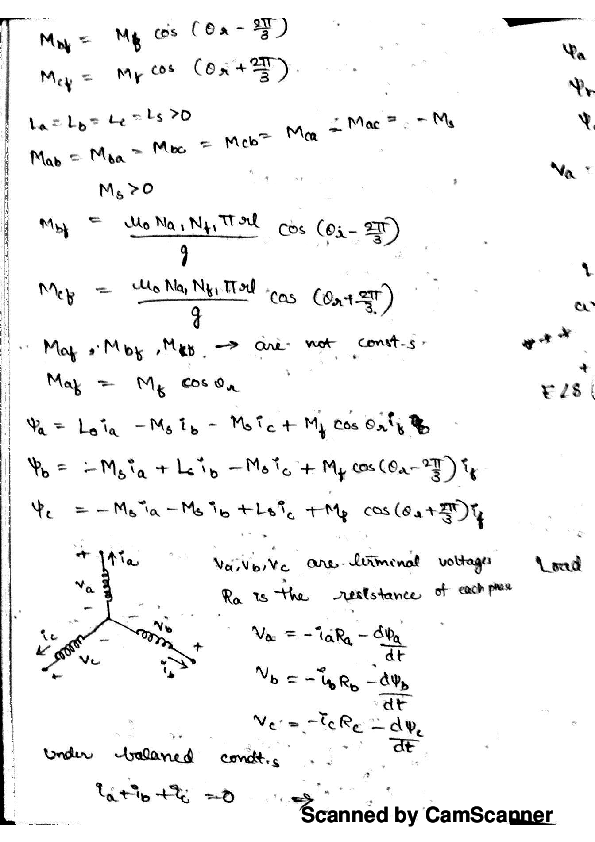 M_bf = M_f cos (θr - 2π/3)
M_cf = M_f cos (θr + 2π/3)
La = Lb = Lc = Ls >0
Mab = Mba = Mbc = Mcb = Mca = Mac = - Ms
Ms >0
M_bf = μ0 Na, Nf, π rl / g cos (θi - 2π/3)
M_cf = μ0 Na, Nf, π rl / g cos (θr + 2π/3)
Maf, Mbf, → are not const.s
Maf = Mf cos θr
ψa = Ls ia - Ms ib - Ms ic + Mf cos θr if
ψb = - Ms ia + Ls ib - Ms ic + Mf cos (θr - 2π/3) if
ψc = - Ms ia - Ms ib + Ls ic + Mf cos (θr + 2π/3) if
+ ↑ ia
va
ic
vc
vb
ib
+
va, vb, vc are terminal voltages
Ra is the resistance of each phase
va = - ia Ra - dψa/dt
vb = - ib Rb - dψb/dt
vc = - ic Rc - dψc/dt
under balaned condt.s
ia + ib + ic = 0 ⇒
ψa
va =
***
E28
Load
Scanned by CamScanner